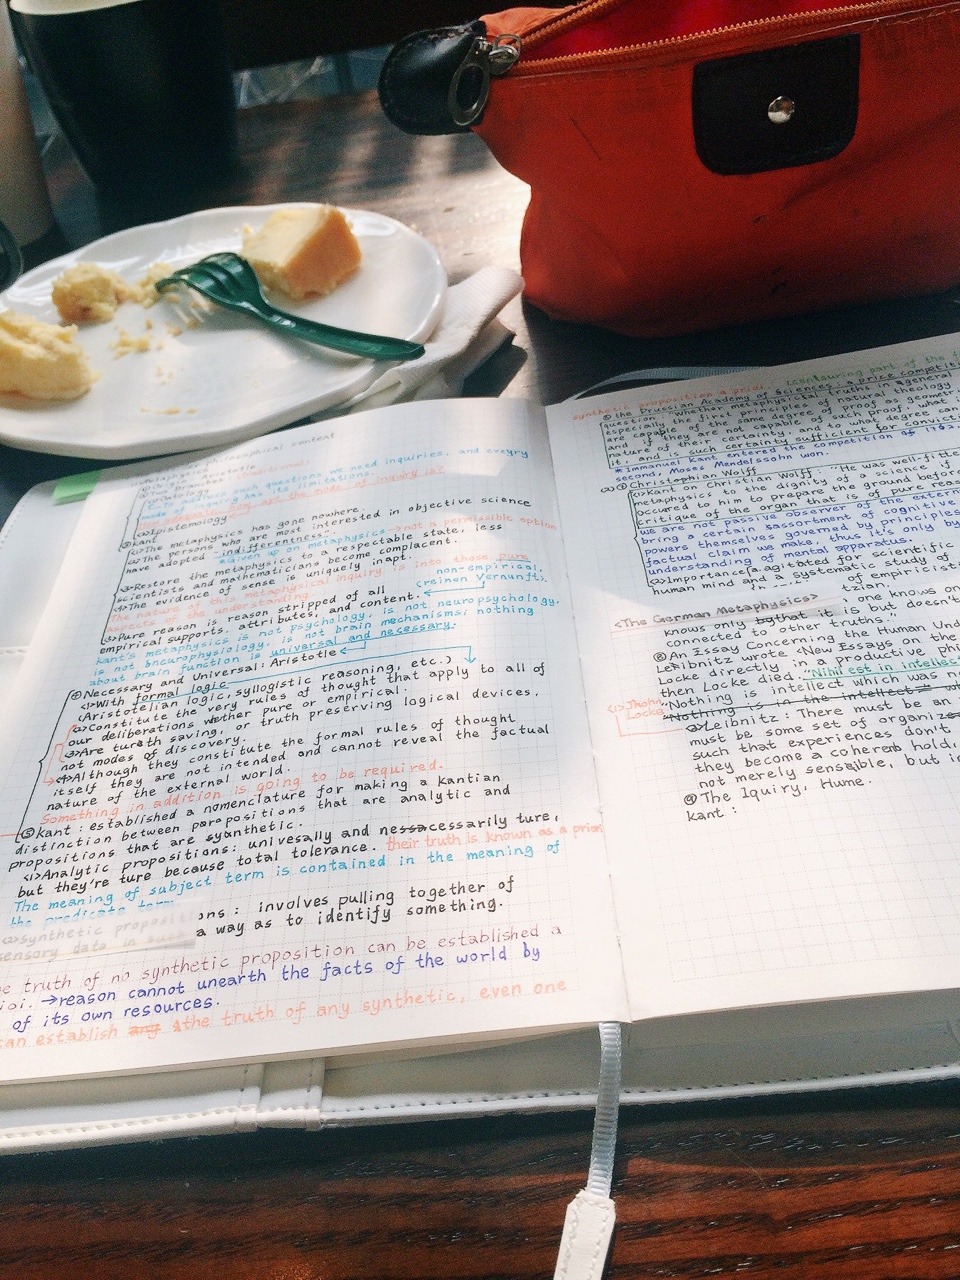 philosophical context
Aristotle
Two branches
Ontology
such questions we need inquiries, and every
mode of inquiry has its limitations.
are the mode of inquiry is?
Epistemology
kant
<1>The metaphysics has gone nowhere.
<2>The persons who are most interested in objective science
have adopted "indifferentness".
given up on metaphysics → not a permissible option
<3>Restore the metaphysics to a respectable state, less
scientists and mathematicians become complacent.
<4>The evidence of sense is uniquely inapt.
The nature of this metaphysical inquiry is into those pure
aspects of the understanding
non-empirical.
<5>Pure reason is reason stripped of all
(reinen Vernunft).
empirical supports, attributes, and content.
kant's metaphysics is not psychology, is not neuropsychology,
is not bneurophysiology, is not brain mechanisms; nothing
about brain function is universal and necessary.
Necessary and Universal: Aristotle
<1>With formal logic
(Aristotelian logic, syllogistic reasoning, etc.)
<2>Constitute the very rules of thought that apply to all of
our deliberations whether pure or empirical.
<3>Are tureth saving, or truth preserving logical devices,
not modes of discovery.
<4>Although they constitute the formal rules of thought
itself they are not intended and cannot reveal the factual
nature of the external world.
Something in addition is going to be required.
kant: established a nomenclature for making a kantian
distinction between paroposítions that are analytic and
propositions that are synthetic.
<1>Analytic propositions: univesally and necessarily ture,
but they're ture because total tolerance. their truth is known as a priori
The meaning of subject term is contained in the meaning of
the predicate term.
<2>synthetic propositions: involves pulling together of
sensory data in such a way as to identify something.
truth of no synthetic proposition can be established a
ioi. →reason cannot unearth the facts of the world by
of its own resources.
can establish any the truth of any synthetic, even one
part of the
synthetic proposition a priori
the Prussian Academy of Sciences: a price competit
question "whether metaphysical truths in general
the first principles natural theology
especially the same degree of proof as geometr
are capable of such proof, what
and if they're not capable of such proof, what
nature of their certainty, and to what degree can
it, and is such certainty sufficient for convi
*Immanuel Kant entered the competition of
second, Moses Mendelssohn won.
Christopher Wolff
kant on Christian Wolff: "He was well-fitte
metaphysics to the dignity of a science if
occured to him to prepare the ground bef
critique of the organ that is of pure reas
we are not passive observer of the extern
bring a certain sassortment of cogniti
powers themselves governed by principles
factual claim we make, thus it's only by
understanding of mental apparatus.
<2>Importance agitated for scientific
human mind and a systematic study of
of empiricist
tzian.
<The German Metaphysics>
one knows on
knows only bythat it is but doesn't
connected to other truths."
An Essay Concerning the Human Und
Leibnitz wrote <New Essays on the
Locke directly in a productive phi
then Locke died. "Nihil est in intellec
<1>Jhohn
Locke
Nothing is intellect which was no
Nothing is in the intellect wh
<2>Leibnitz: There must be an
must be some set of organize
such that experiences don't
they become a coherent hold,
not merely sensible, but i
The Iquiry, Hume
kant: